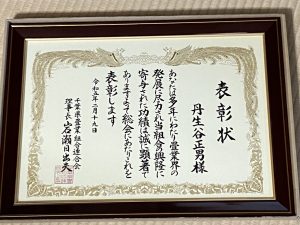 表彰状
丹生谷正男様
あなたは多年にわたり畳業界の
発展に尽力され当組合の興隆に
寄与された功績は誠に顕著で
ありますよって総会にあたりこれを
表彰します
令和五年二月十九日
千葉県畳業組合連合会
理事長 岩瀬日出夫